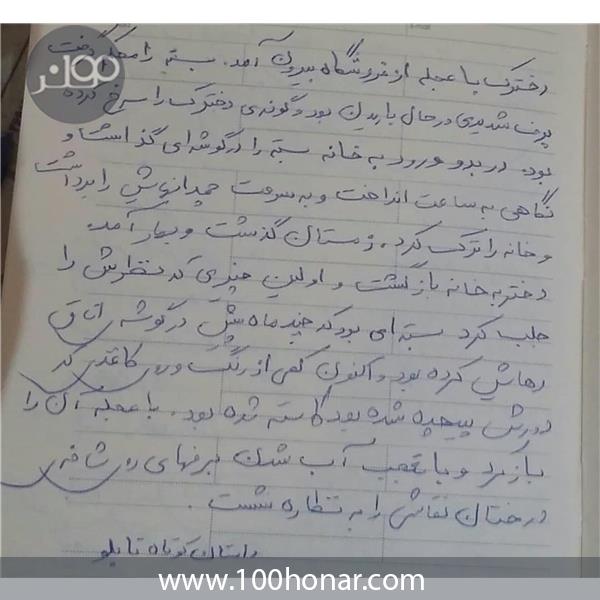 دخترک با عجله از فروشگاه بیرون آمد. بسته را محکم گرفت
برف شدیدی در حال باریدن بود و گونه‌ی دخترک را سرخ کرده
بود. در بدو ورود به خانه بسته را در گوشه‌ای گذاشت و
نگاهی به ساعت انداخت و به سرعت چمدانهایش را برداشت
و خانه را ترک کرد. زمستان گذشت و بهار آمد.
دختر به خانه بازگشت و اولین چیزی که نظرش را
جلب کرد بسته‌ای بود که چند ماه پیش در گوشه اتاق
رهایش کرده بود و اکنون کمی از رنگ و روی کاغذی که
دورش پیچیده شده بود کاسته شده بود. با عجله آن را
باز کرد و با تعجب آب شدن برفهای روی شاخه‌ی
درختان نقاشی را به نظاره نشست.
داستان کوتاه تابلو
www.100honar.com